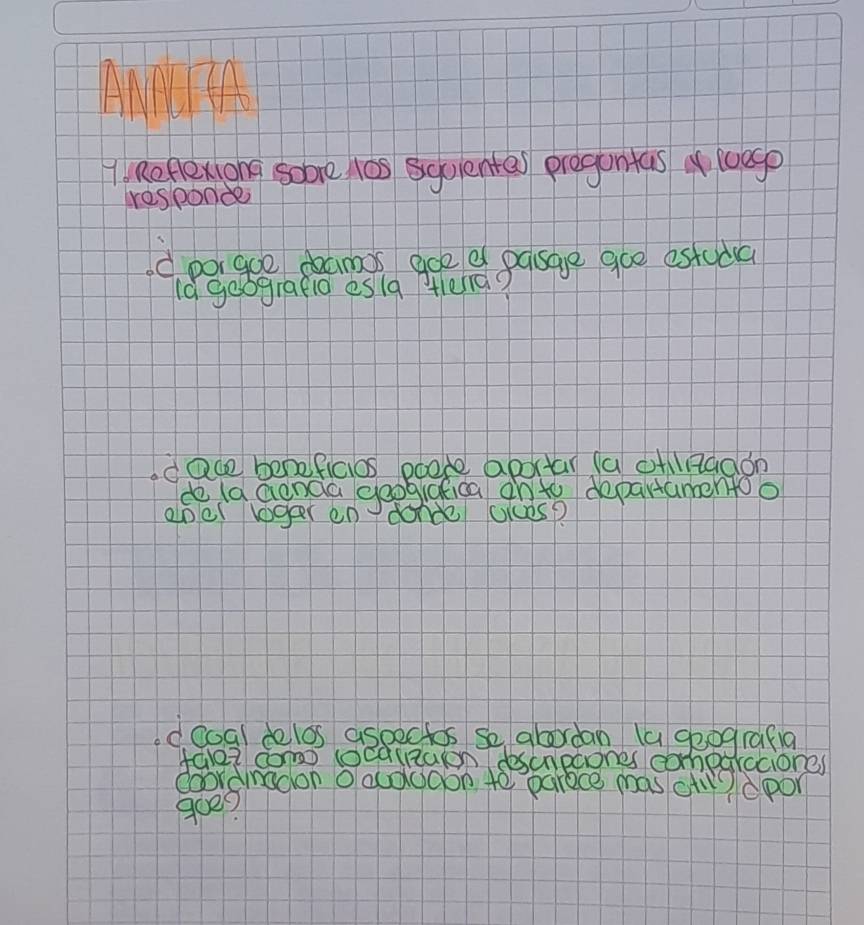 ANALIZA
1. Reflexiona sobre los siguientes preguntas y luego
responde
. ¿ por que decimos que el paisaje que estudia
la geografia es la tierra?
. ¿ Que beneficios puede aportar la utilización
de la cienda geografica en tu departamento o
en el lugar en donde vives?
. ¿ Cual de los aspectos se abordan la geografia
tales como localización descripciones comparaciones
coordinación o evolucion te parece mas util? ¿ por
que?